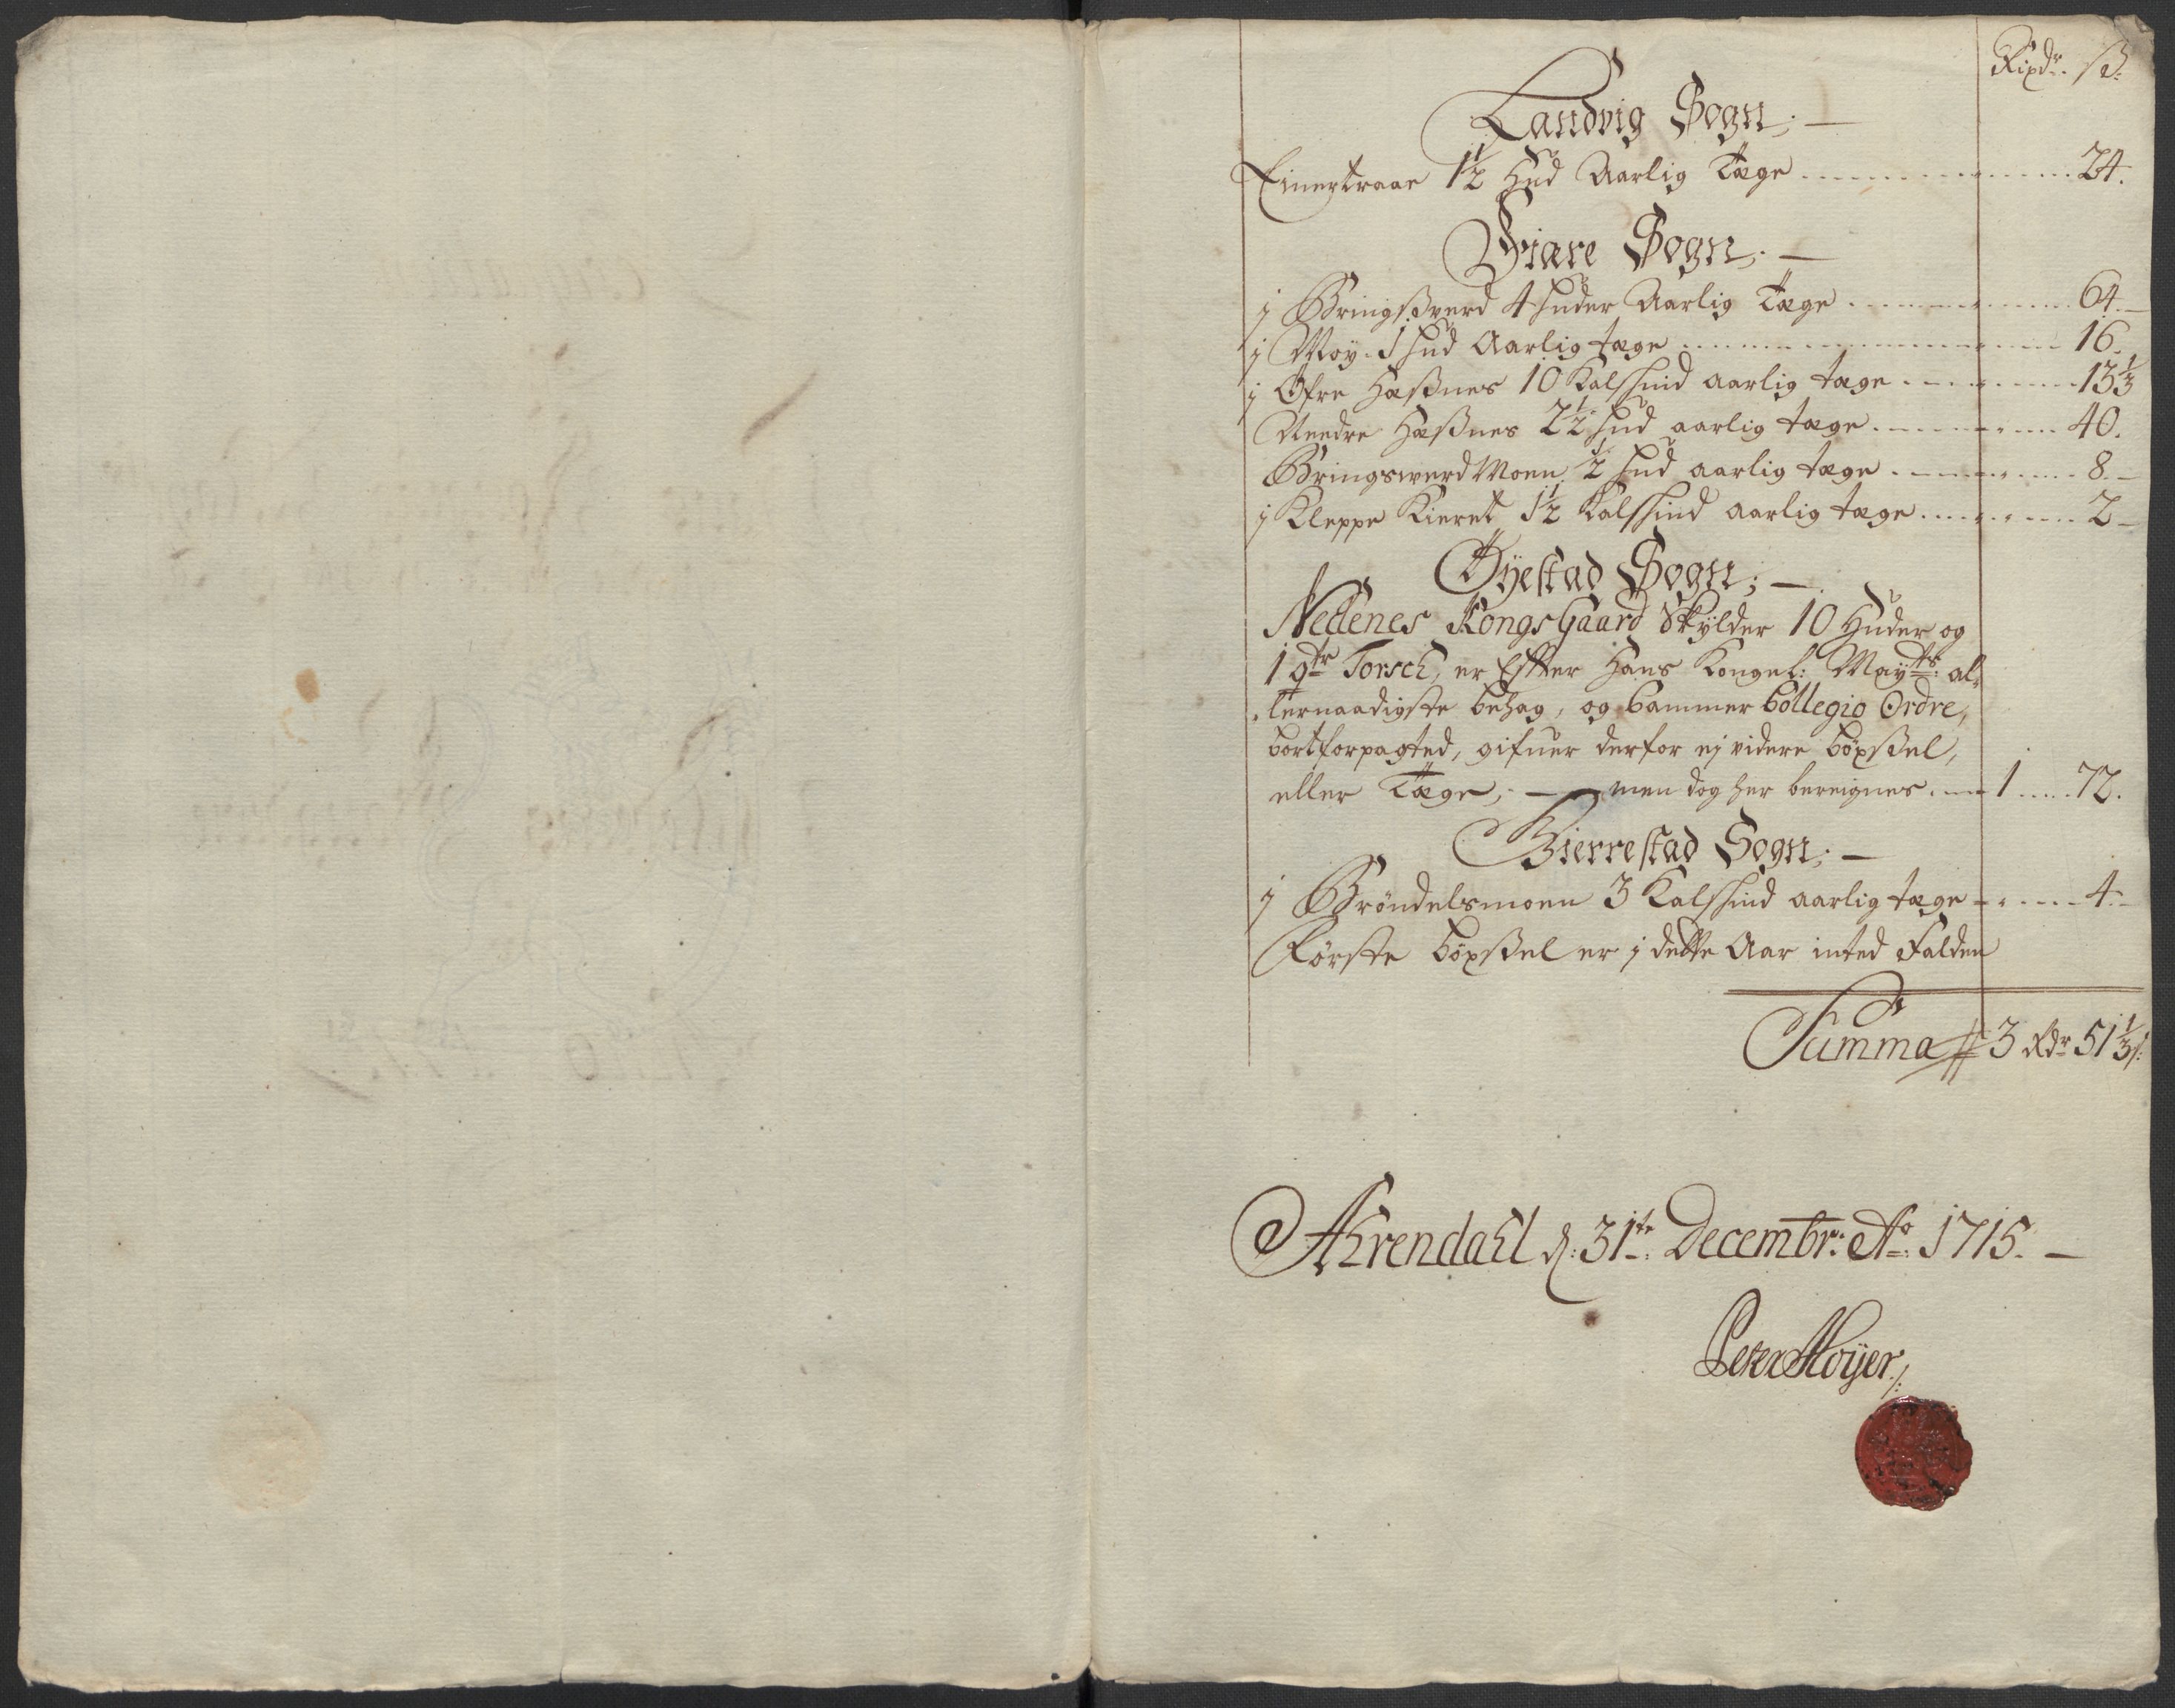 Rixdr. ß:
Landvig Sogn;
Einertraae 1½ Hud Aarlig Tæge 24.
Fiære Sogn;
j Bringsverd 4 huder Aarlig Tæge 64.
j Moy 1 hud Aarlig tæge 16.
j Øfre Hæßnes 10 Kalfskind aarlig tæge 13⅓
Needre Hæßnes 2½ hud aarlig tæge 40.
Bringswerd Moen ½ hud aarlig tæge 8.
j Kleppe Kieret 1½ Kalfskind aarlig tæge 2
Øyestad Sogn;
Nedenes KongsGaard Skylder 10 Huder og
1 qtr Torsch, er Efter Hans Kongel: Mayts: al-
lernaadigste behag, og Cammer Collegio Ordre,
bortforpagted, gifuer derfor ej videre böxßel,
eller Tæge; men dog her bereignes 1 72.
Bierrestad Sogn;
j Bröndelsmoen 3 Kalfskind aarlig tæge 4
Förste böxßel er j dette Aar inted Falden
Summa 3 Rdr 51⅓ ß:
Ahrendahl d: 31te: Decembr: Ao: 1715.
Peter Moyer